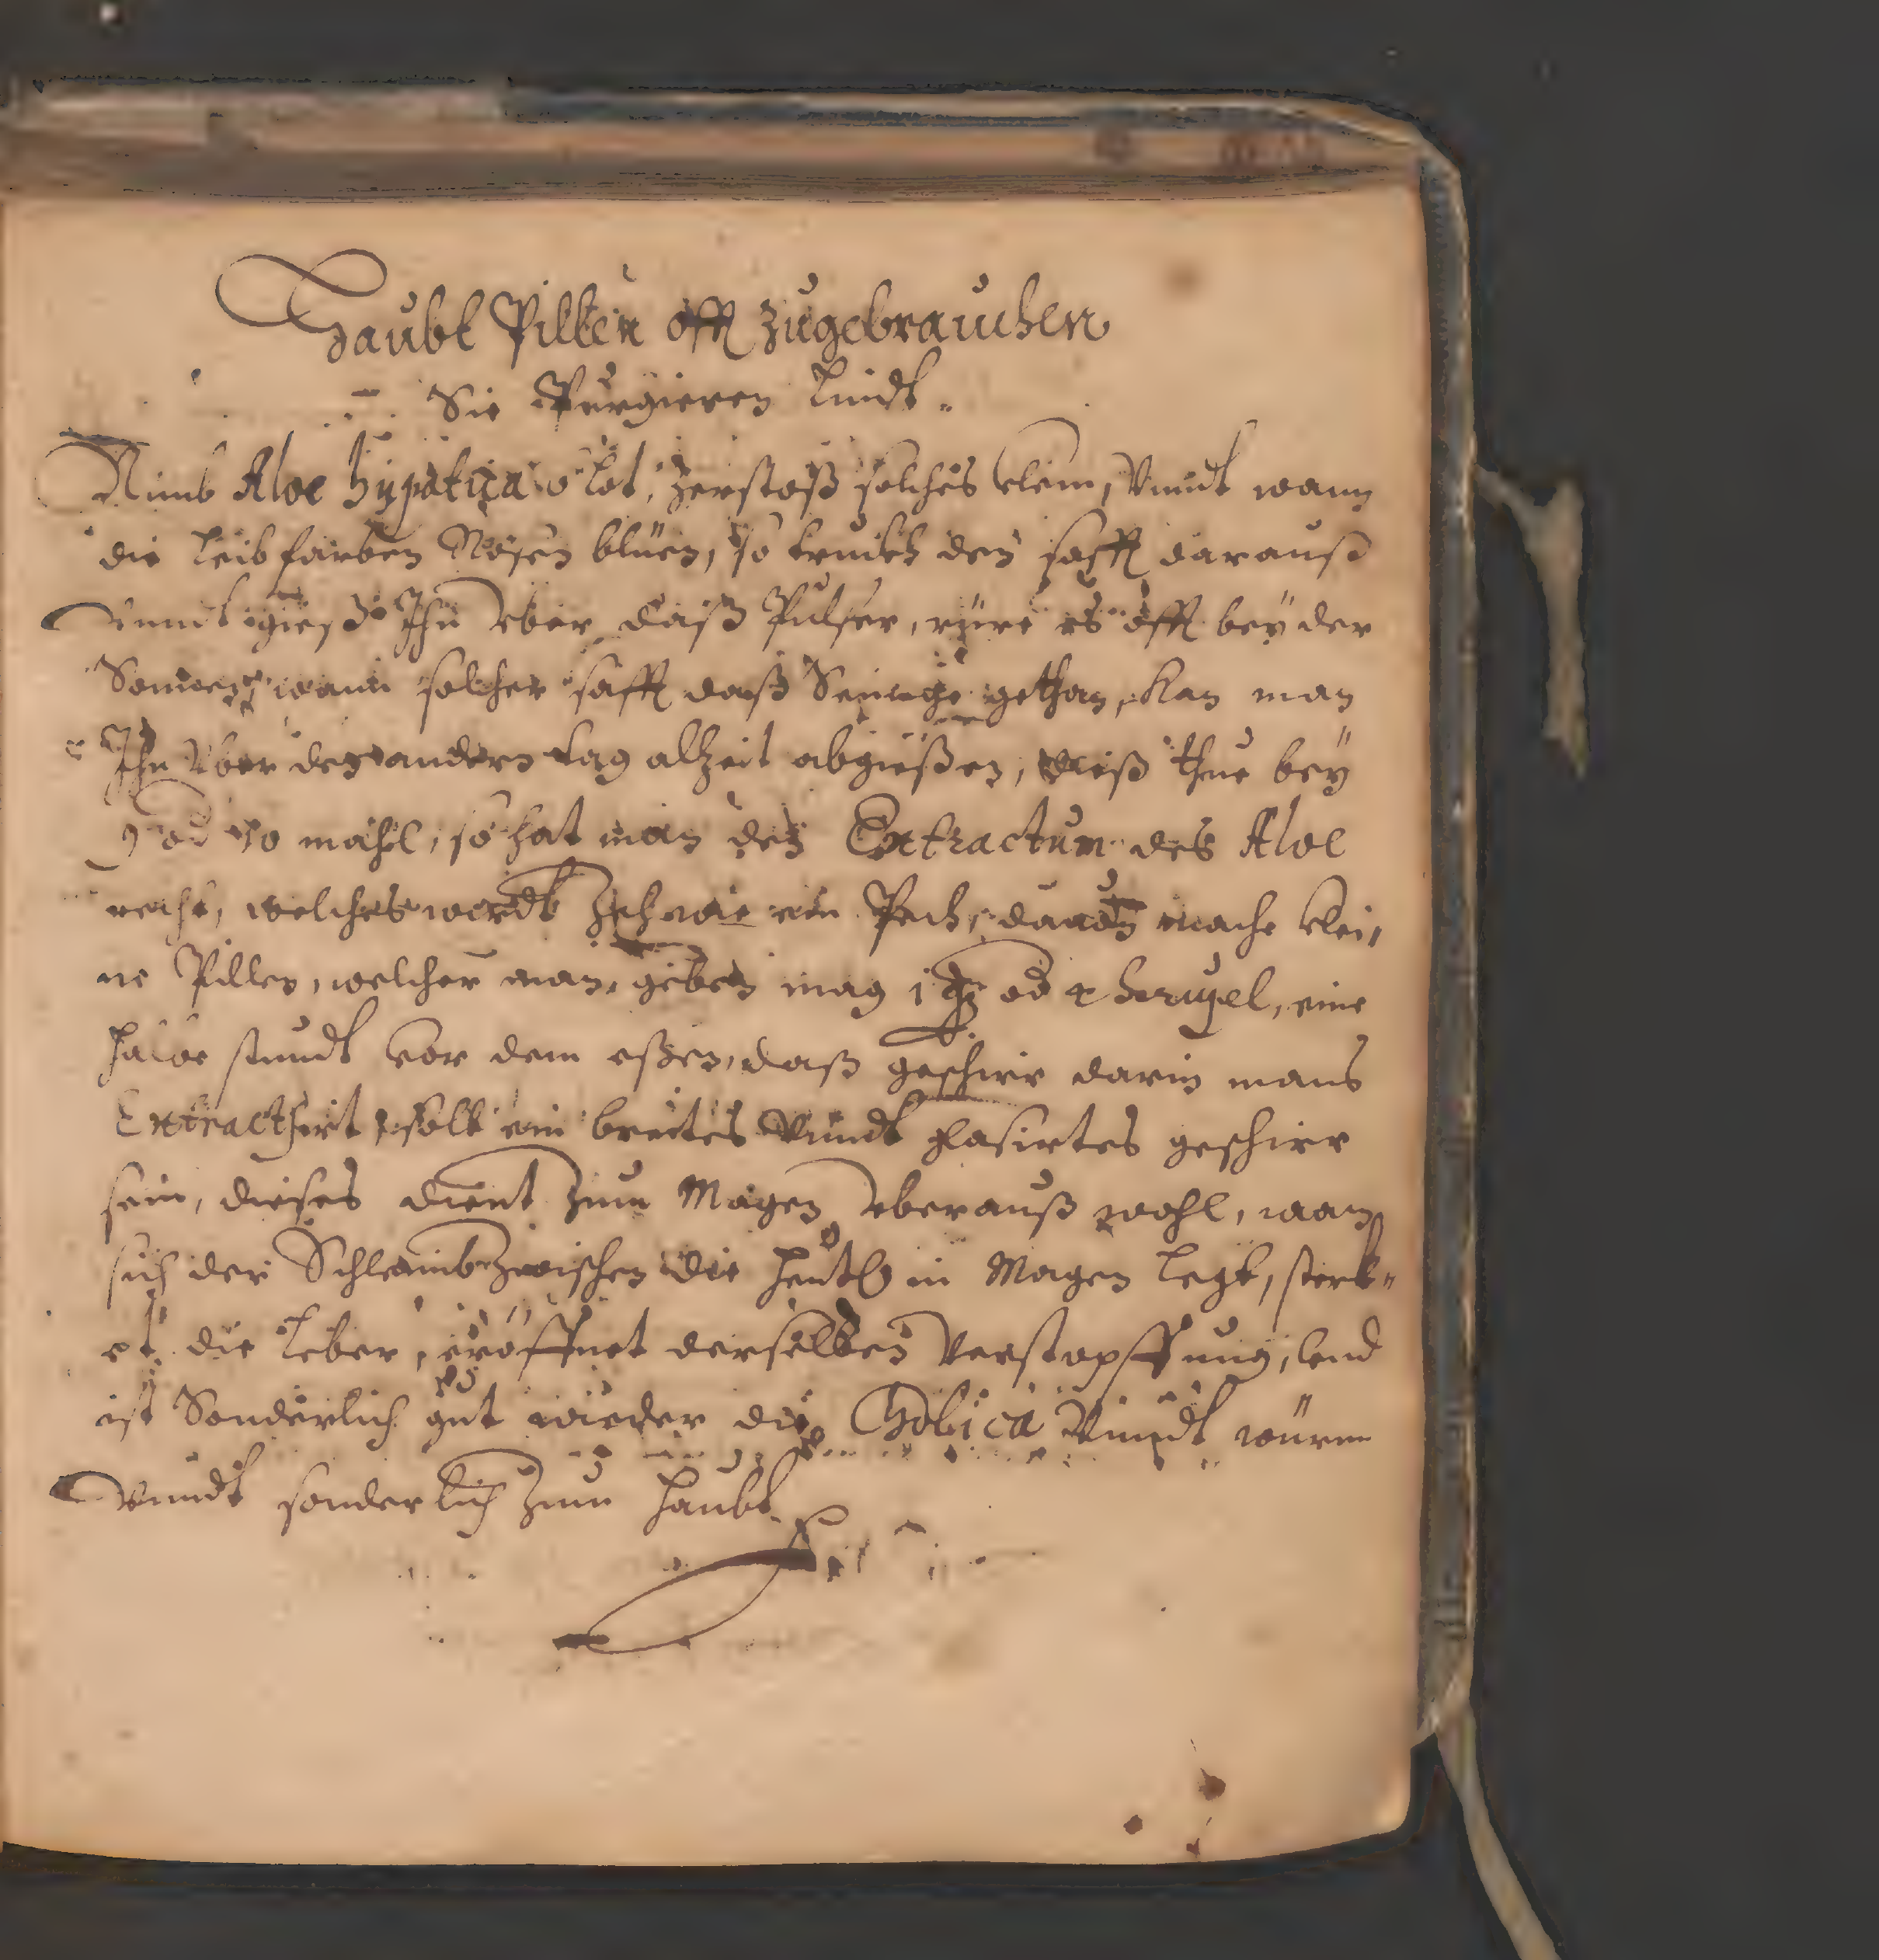 Haubt Pillen offt Zugebrauchen
Sie Purgieren lindt.
Nimb Aloe hypatica 6 lot, Zerstoß solches klein, Vnndt wann
die leibfarben Rosen blüen, so truckh den safft darauß
Vnndt gieß Ihn Vber daß Pulfer, rüre es offt bey der
Sonnen, wann solcher safft daß Seinige gethan, Kan man
Ihn Vber den andern tag alzeit abgießen, diß thue bey
9 od 10 mahl, so hat man den Extractum des Aloe
recht, welches würdt Zech wie ein Pech, darauß mache klei,
ne Pillen, welcher man geben mag 1 od scrupel, eine
halbe stundt vor dem eßen, daß geschirr darin mans
Extracthirt, soll ein breites Vnndt glasirtes geschirr
sein, dieses dient Zum Magen Vberauß wohl, wann
sich der Schleimb Zwischen die heutl in Magen legt, sterk"
et die leber, eröffnet derselben Verstopffung, Vnd
ist Sonderlich gut wieder die Cholica Vnndt würm
Vnndt sonderlich Zum haubt.